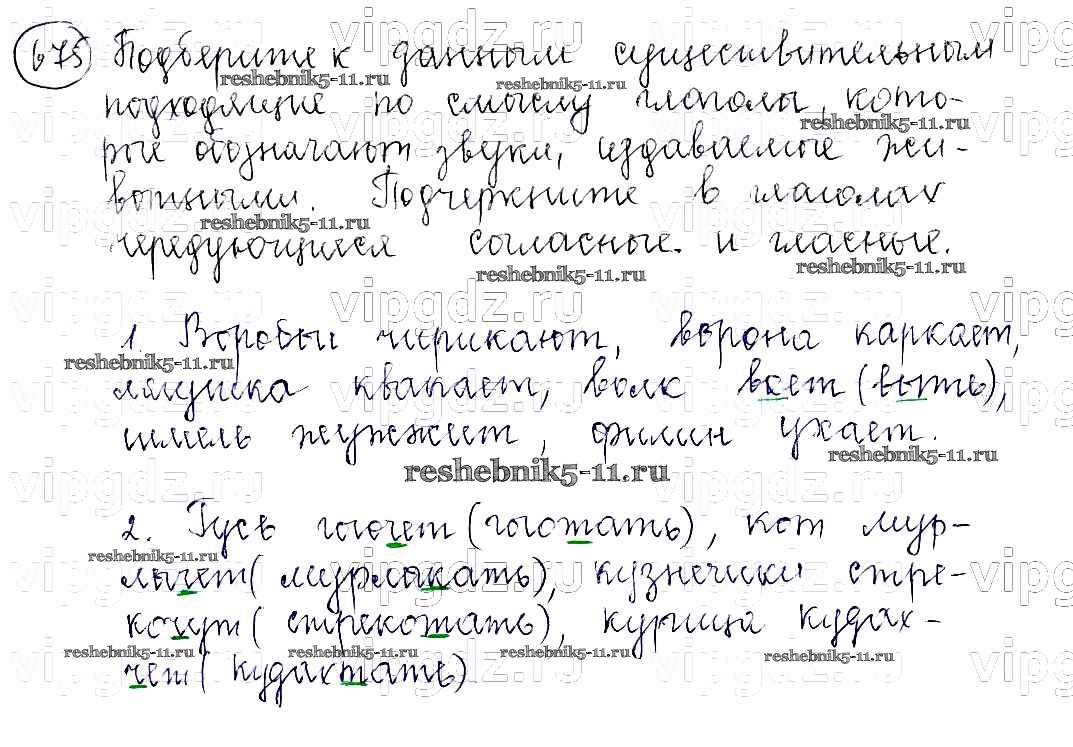 675 Подберите к данным существительным
подходящие по смыслу глаголы, кото-
рые обозначают звуки, издаваемые жи-
вотными. Подчеркните в глаголах
чередующиеся согласные и гласные.
1. Воробьи чирикают, ворона каркает,
лягушка квакает, волк воет (выть),
шмель жужжит, филин ухает.
2. Гусь гогочет (гоготать), кот мур-
лычет (мурлыкать), кузнечики стре-
кочут (стрекотать), курица кудах-
чет (кудахтать)
vipgdz.ru
reshebnik5-11.ru